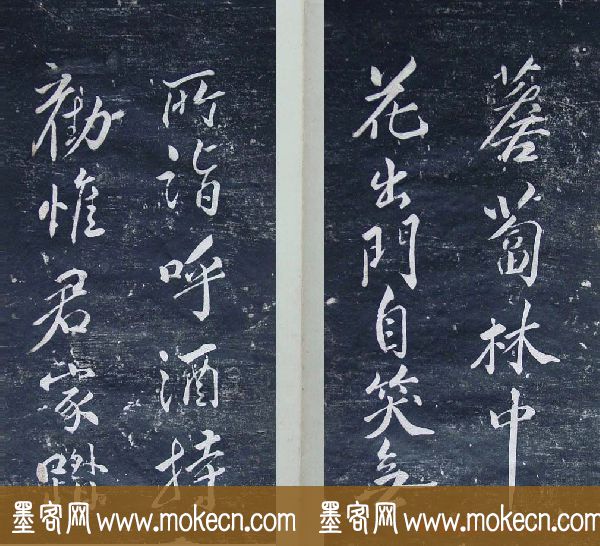 薝蔔林中
花出門自笑無
所詣呼酒持
勸惟君家
墨客网 www.mokecn.com 墨客网 www.mokecn.com